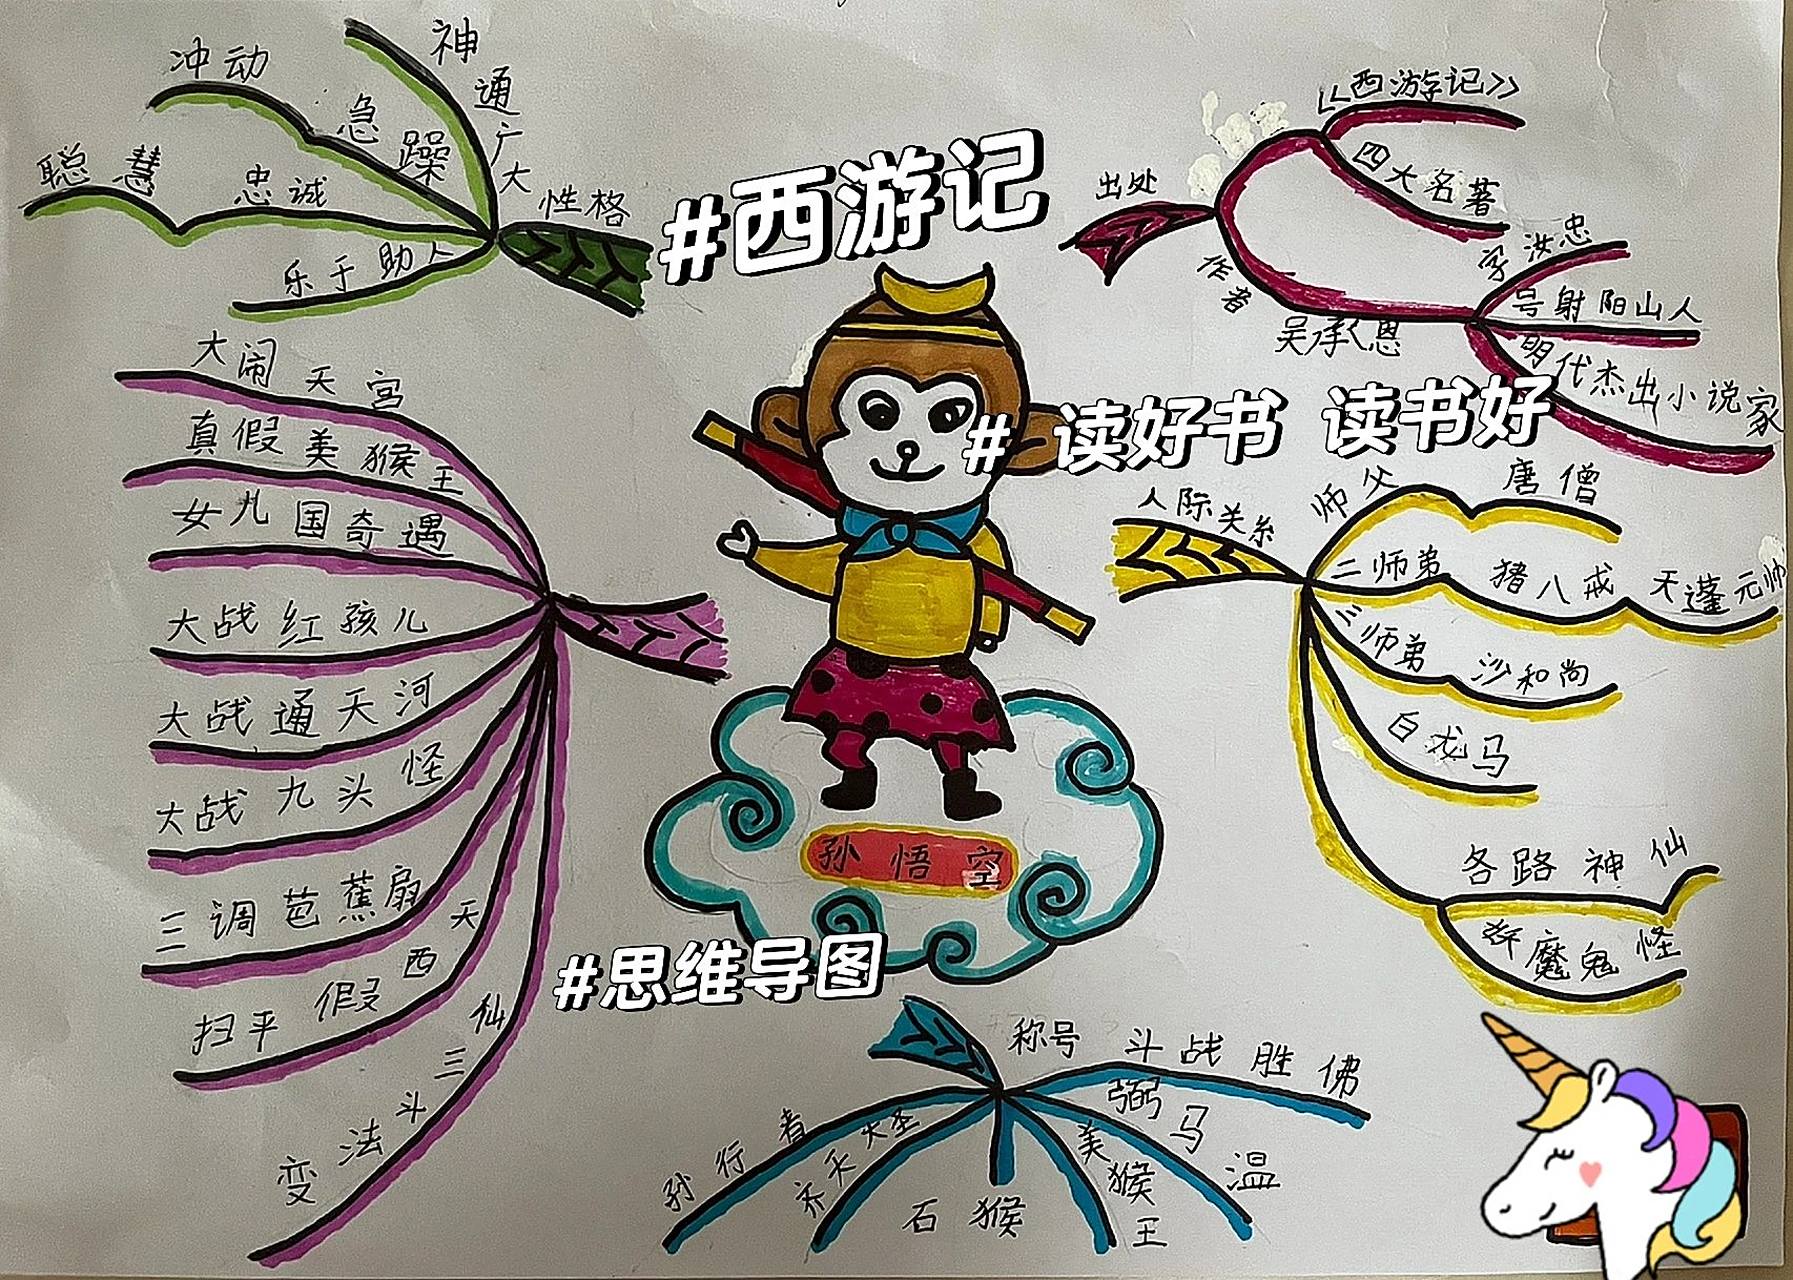 性格
神通广大
冲动
急躁
聪慧
忠诚
乐于助人
#西游记
出处
《西游记》
四大名著
作者
吴承恩
字汝忠
号射阳山人
明代杰出小说家
# 读好书 读书好
大闹天宫
真假美猴王
女儿国奇遇
大战红孩儿
大战通天河
大战九头怪
三调芭蕉扇
扫平假西天
变法斗三仙
人际关系
师父
唐僧
二师弟
猪八戒
天蓬元帅
三师弟
沙和尚
白龙马
各路神仙
妖魔鬼怪
孙悟空
#思维导图
称号
斗战胜佛
弼马温
美猴王
石猴
齐天大圣
孙行者